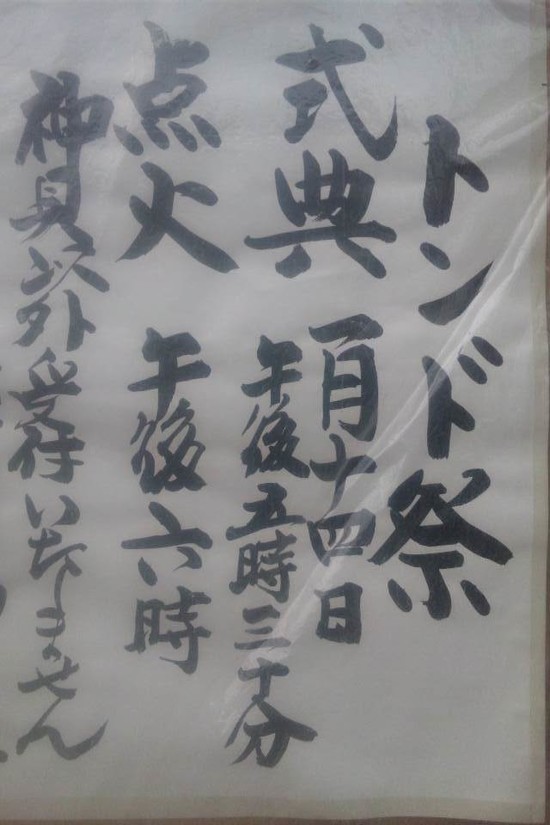 トンド祭
式典 一月十四日
午後五時三十分
点火 午後六時
神具以外受付いたしません